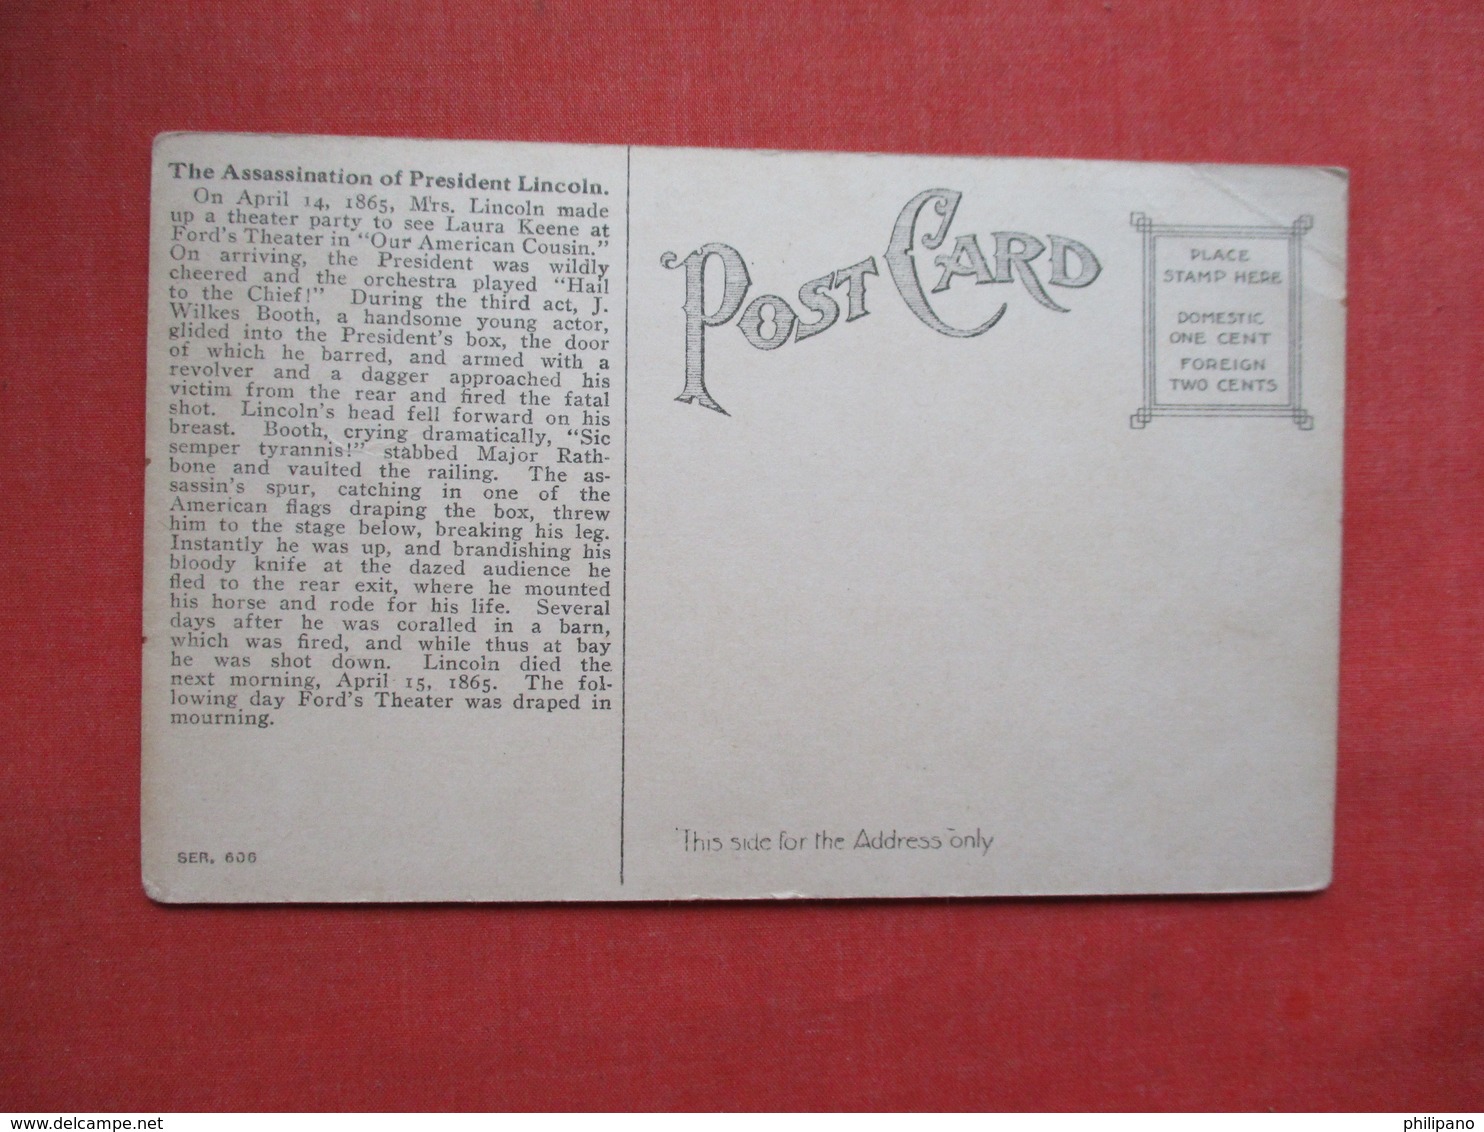 The Assassination of President Lincoln.
On April 14, 1865, Mrs. Lincoln made
up a theater party to see Laura Keene at
Ford's Theater in "Our American Cousin."
On arriving, the President was wildly
cheered and the orchestra played "Hail
to the Chief!" During the third act, J.
Wilkes Booth, a handsome young actor,
glided into the President's box, the door
of which he barred, and armed with a
revolver and a dagger approached his
victim from the rear and fired the fatal
shot. Lincoln's head fell forward on his
breast. Booth, crying dramatically, "Sic
semper tyrannis!" stabbed Major Rath-
bone and vaulted the railing. The as-
sassin's spur, catching in one of the
American flags draping the box, threw
him to the stage below, breaking his leg.
Instantly he was up, and brandishing his
bloody knife at the dazed audience he
fled to the rear exit, where he mounted
his horse and rode for his life. Several
days after he was coralled in a barn,
which was fired, and while thus at bay
he was shot down. Lincoln died the
next morning, April 15, 1865. The fol-
lowing day Ford's Theater was draped in
mourning.
SER. 606
POST CARD
8
PLACE
STAMP HERE
DOMESTIC
ONE CENT
FOREIGN
TWO CENTS
This side for the Address only
delcampe.net
philipano